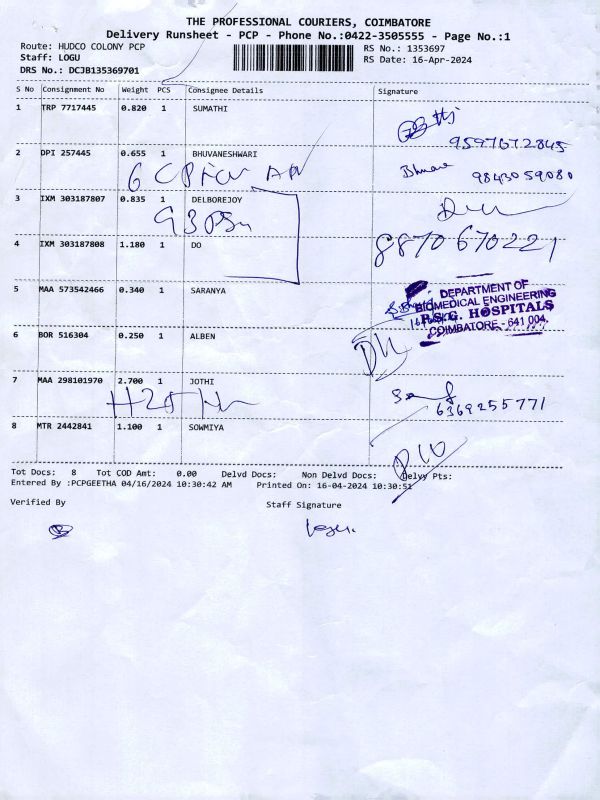 THE PROFESSIONAL COURIERS, COIMBATORE
Delivery Runsheet - PCP - Phone No.:0422-3505555 - Page No.:1
Route: HUDCO COLONY PCP
RS No.: 1353697
Staff: LOGU
RS Date: 16-Apr-2024
DRS No.: DCJB135369701
S No Consignment No Weight PCS Consignee Details Signature
1 TRP 7717445 0.820 1 SUMATHI
9597672845
2 DPI 257445 0.655 1 BHUVANESHWARI
9843059080
3 IXM 303187807 0.835 1 DELBOREJOY
4 IXM 303187808 1.180 1 DO
8870670221
5 MAA 573542466 0.340 1 SARANYA
DEPARTMENT OF
BIOMEDICAL ENGINEERING
P.S.G. HOSPITALS
COIMBATORE - 641 004.
6 BOR 516304 0.250 1 ALBEN
7 MAA 298101970 2.700 1 JOTHI
6369255771
8 MTR 2442841 1.100 1 SOWMIYA
Tot Docs: 8 Tot COD Amt: 0.00 Delvd Docs: Non Delvd Docs: Delvy Pts:
Entered By :PCPGEETHA 04/16/2024 10:30:42 AM Printed On: 16-04-2024 10:30:51
Verified By Staff Signature